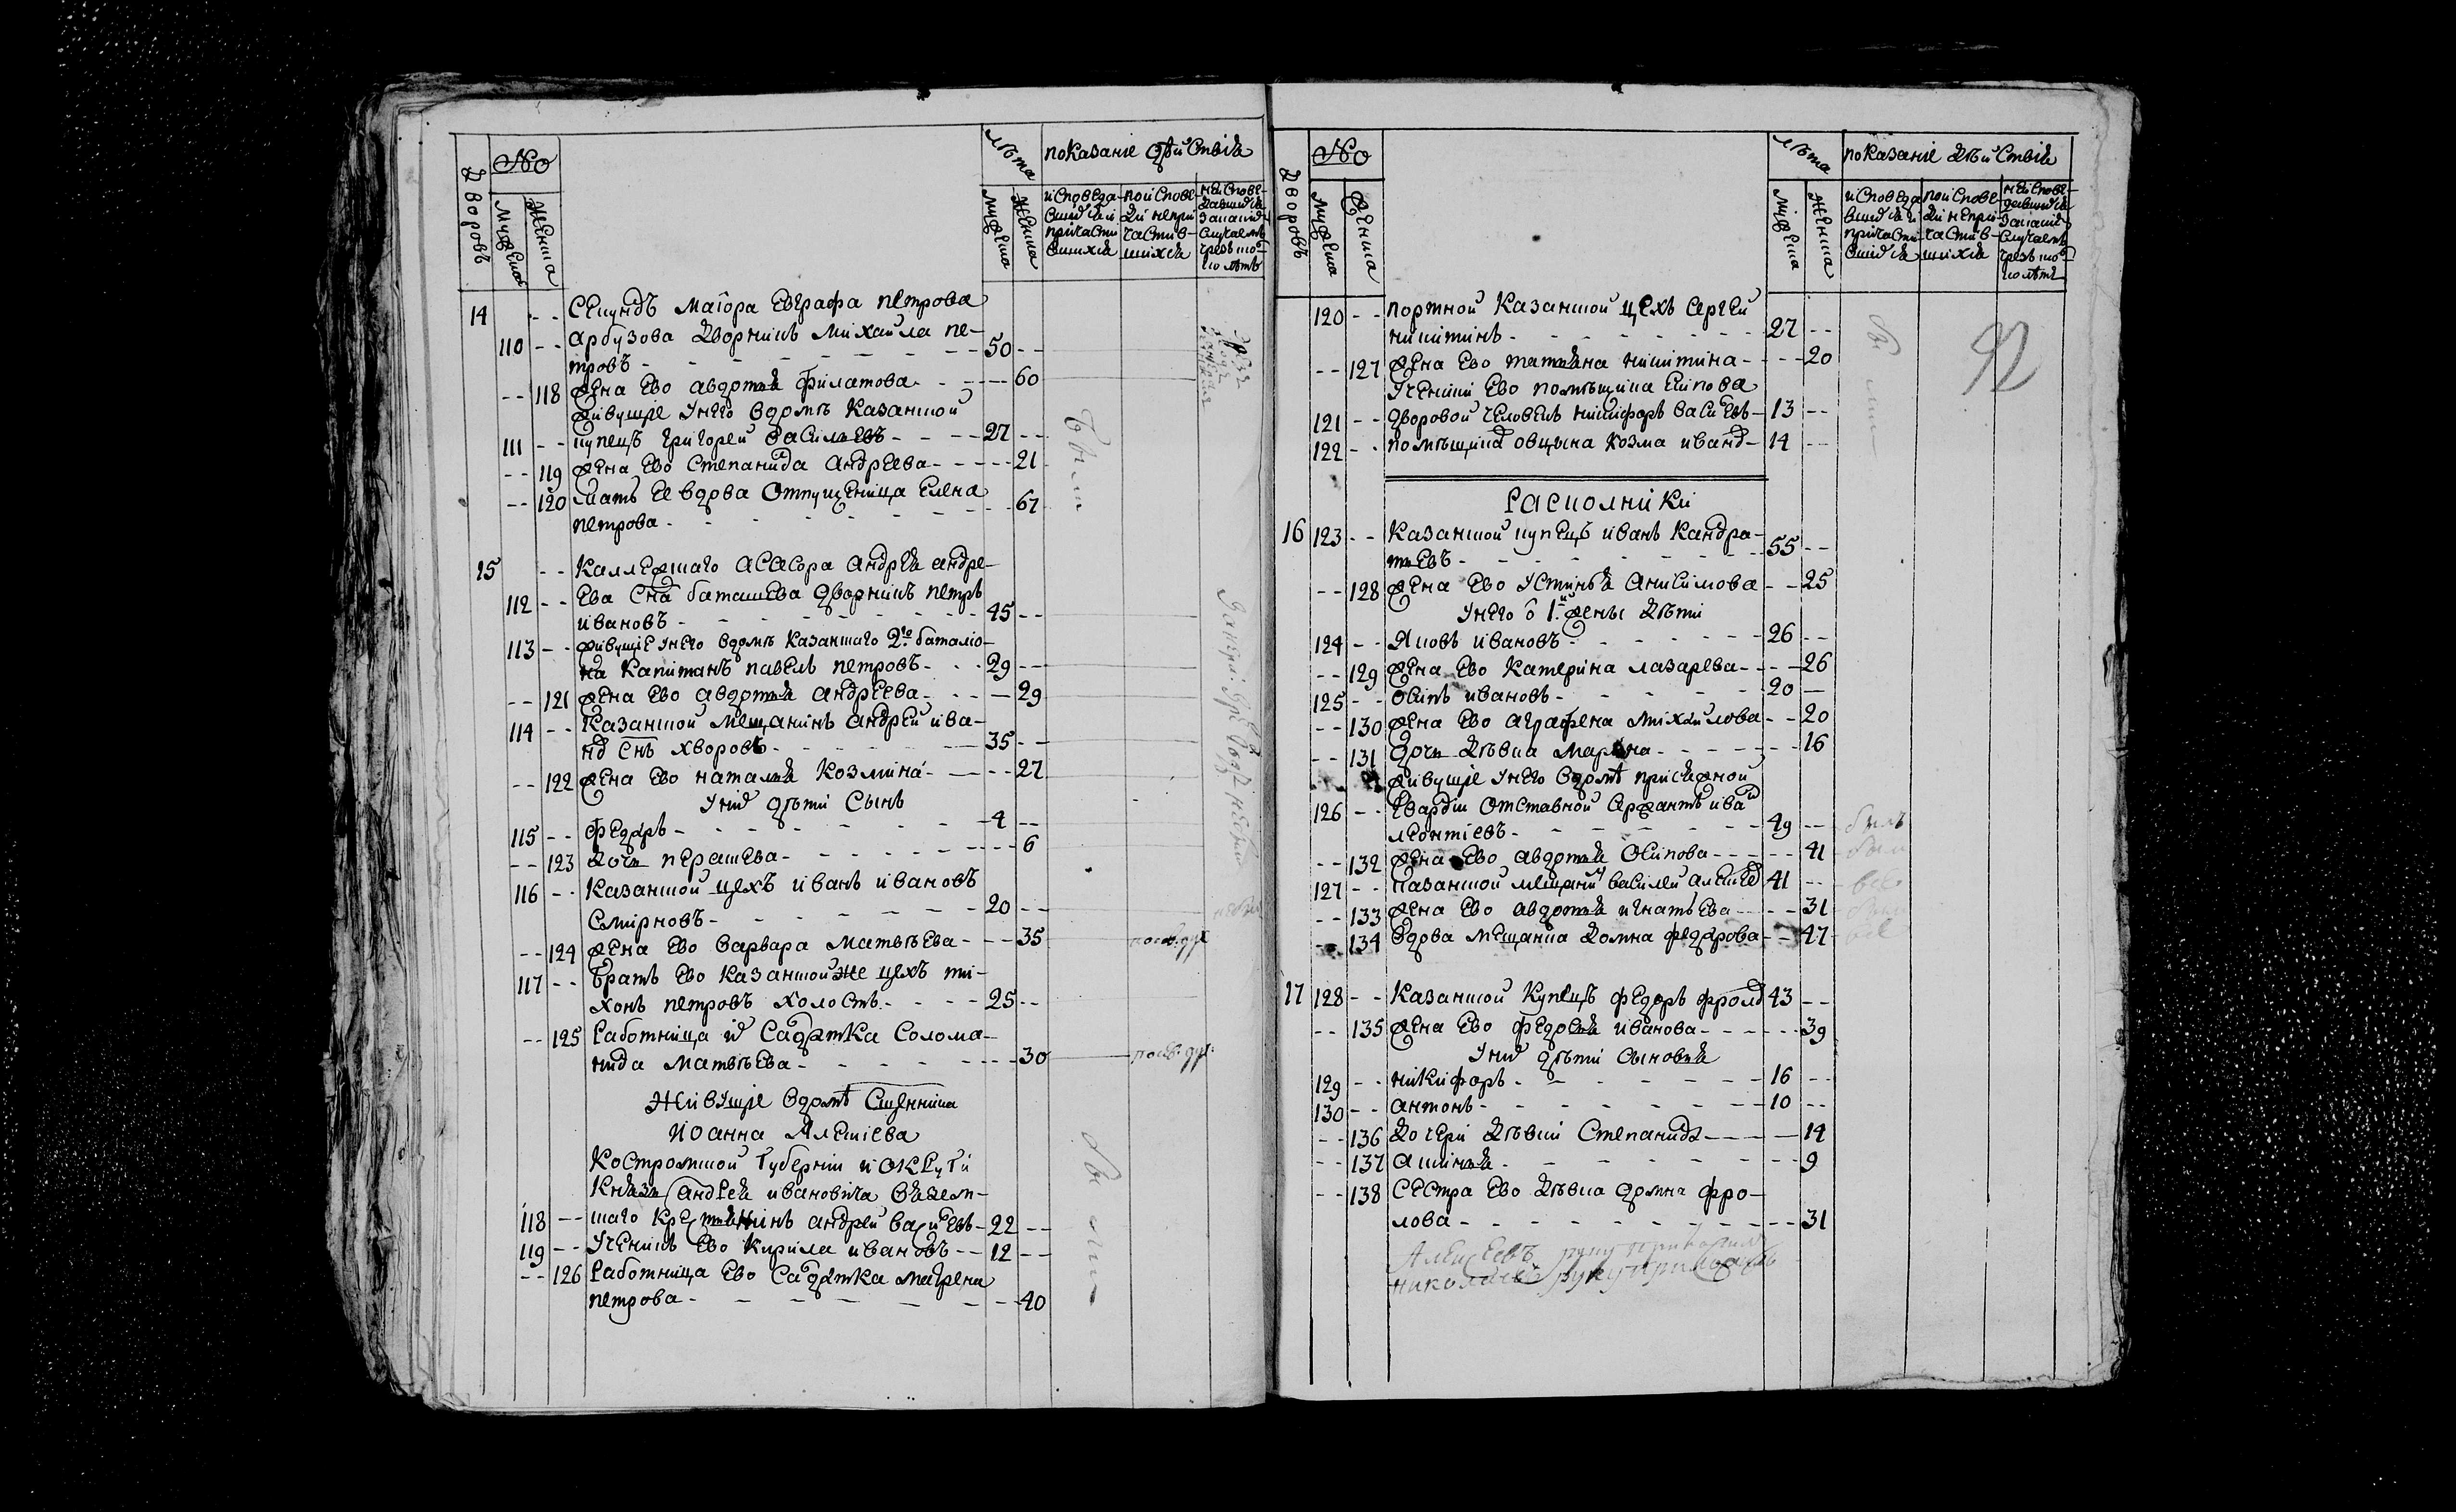 Дворовъ
No
мужеска
женска
лѣта
мужеска
женска
показанiе дѣйствiя
исповеда-
вшихся и
причасти
вшихся
по испове-
ди непри-
частив-
шихся
не испове-
давшихся
14 - - Секундъ маiора Евграфа петрова
110 - - Арбузова дворникъ михайла пе-
тровъ - 50 - -
- - 118 жена Ево авдотья филатова - - 60
живущiе унего вдомѣ казанской
111 - - купецъ григорей васильевъ - 27 - -
- - 119 жена Ево степанида андреева - - 21
- - 120 мать Ее вдова отпущеница Елена
петрова - - - 67
15 - - Каллежскаго асасора андрея андре-
112 - - Ева сна баташева дворникъ петръ
ивановъ - 45 - -
113 - - живущiе унего вдомѣ казанскаго 2го баталiо-
на капитанъ павелъ петровъ - 29 - -
- - 121 жена Ево авдотья андреева - - 29
114 - - Казанской мещанинъ андрей ива-
нов снъ хворовъ - 35 - -
- - 122 жена Ево наталья козмина - - 27
у них дѣти сынъ
115 - - федоръ - 4 - -
- - 123 дочь перашева - - 6
116 - - Казанской цехъ иванъ ивановъ
Смирновъ - 20 - -
- - 124 жена Ево варвара матвѣева - - 35
117 - - братъ Ево казанской же цехъ ти-
хонъ петровъ холостъ - 25 - -
- - 125 работница их садатка солома-
нида матвѣева - - 30
Живущiе вдомѣ Сщенника
Иоанна Алексiева
Костромской губернiи и округи
Князя андрея ивановича вязем-
118 - - скаго крестьянинъ андрей васильевъ - 22 - -
119 - - ученикъ Ево кирила ивановъ - 12 - -
- - 126 работница Ево садатка матрена
петрова - - 40
Дворовъ
No
мужеска
женска
лѣта
мужеска
женска
показанiе дѣйствiя
исповеда
вшихся и
причасти-
вшихся
по испове-
ди непри-
частив-
шихся
не испове-
давшихся
92
120 - - портной казанской цехъ сергей
никитинъ - 27 - -
- - 127 жена Ево татьяна никитина - - 20
ученики Ево помѣщика
121 - - дворовой человекъ никифоръ васильевъ - 13 - -
122 - - помѣщика овцына козма иванов - 14 - -
Раскольники
16 123 - - Казанской купецъ иванъ кандра-
тьевъ - 55 - -
- - 128 жена Ево устинья анисимова - - 25
унего о 1й жены дѣти
124 - - Яковъ ивановъ - 26 - -
- - 129 жена Ево катерина лазарева - - 26
125 - - осипъ ивановъ - 20 -
- - 130 жена Ево аграфена михайлова - - 20
- - 131 дочь дѣвка марьяна - - 16
живущiе унего вдомѣ
126 - - гвардiи отставной сержантъ иван
леонтiевъ - 49 - -
- - 132 жена Ево авдотья осипова - - 41
127 - - казанской мещанин василей алексѣев 41 - -
- - 133 жена Ево авдотья игнатьева - - 31
- - 134 вдова мещанка домна федорова - - 47
17 128 - - казанской купецъ федоръ фролов 43 - -
- - 135 жена Ево федосья иванова - - 39
у них дѣти сыновья
129 - - никифоръ - 16 - -
130 - - антонъ - 10 - -
- - 136 дочери дѣвки степанида - - 14
- - 137 аксинья - - 9
- - 138 сестра Ево дѣвка домна фро-
лова - - 31